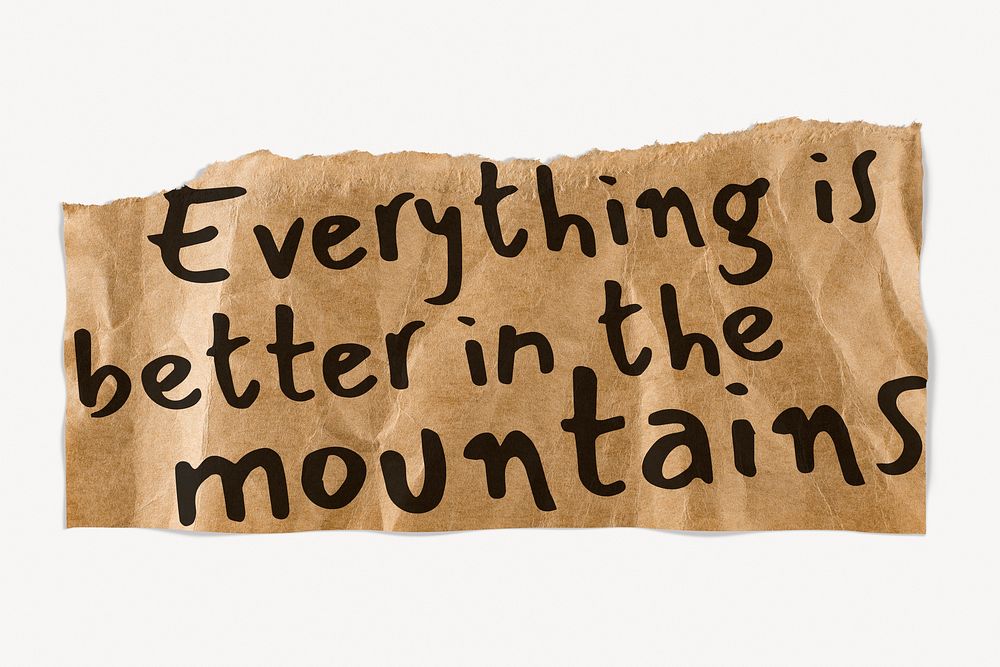 Everything is
better in the
mountains